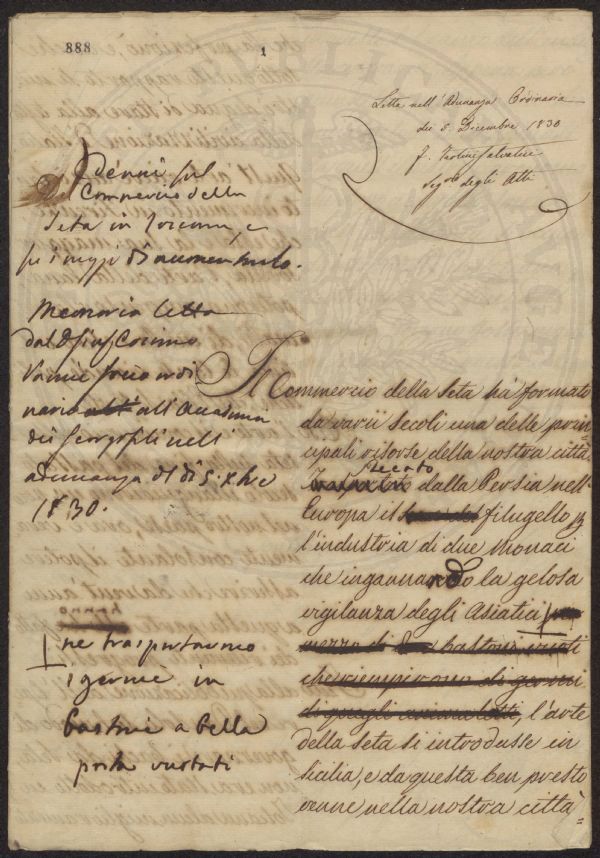 888
1
Letta nell'Adunanza Ordinaria
del 5. Decembre 1830
f. Tartini Salvatici
Seg.rio degli Atti
Cenni sul
Commercio della
Seta in Toscana, e
su i mezzi di aumentarlo.
Memoria letta
dal D. Cosimo
Vanni socio ordi
nario all'Accademia
dei Georgofili nell
adunanza del dì 5. Xbre
1830.
hanno
ne trasportarono
i germi in
bastoni a bella
posta vuotati
Il Commercio della Seta ha formato
da varii secoli una delle prin=
cipali risorse della nostra città.
recato
dalla Persia nell'
Europa il filugello p
l'industria di due Monaci
che ingannando la gelosa
vigilanza degli Asiatici
mezzo di bastoni vuoti
che riempirono di germi
di quegli animaletti, l'arte
della seta si introdusse in
Sicilia, e da questa ben presto
venne nella nostra città=